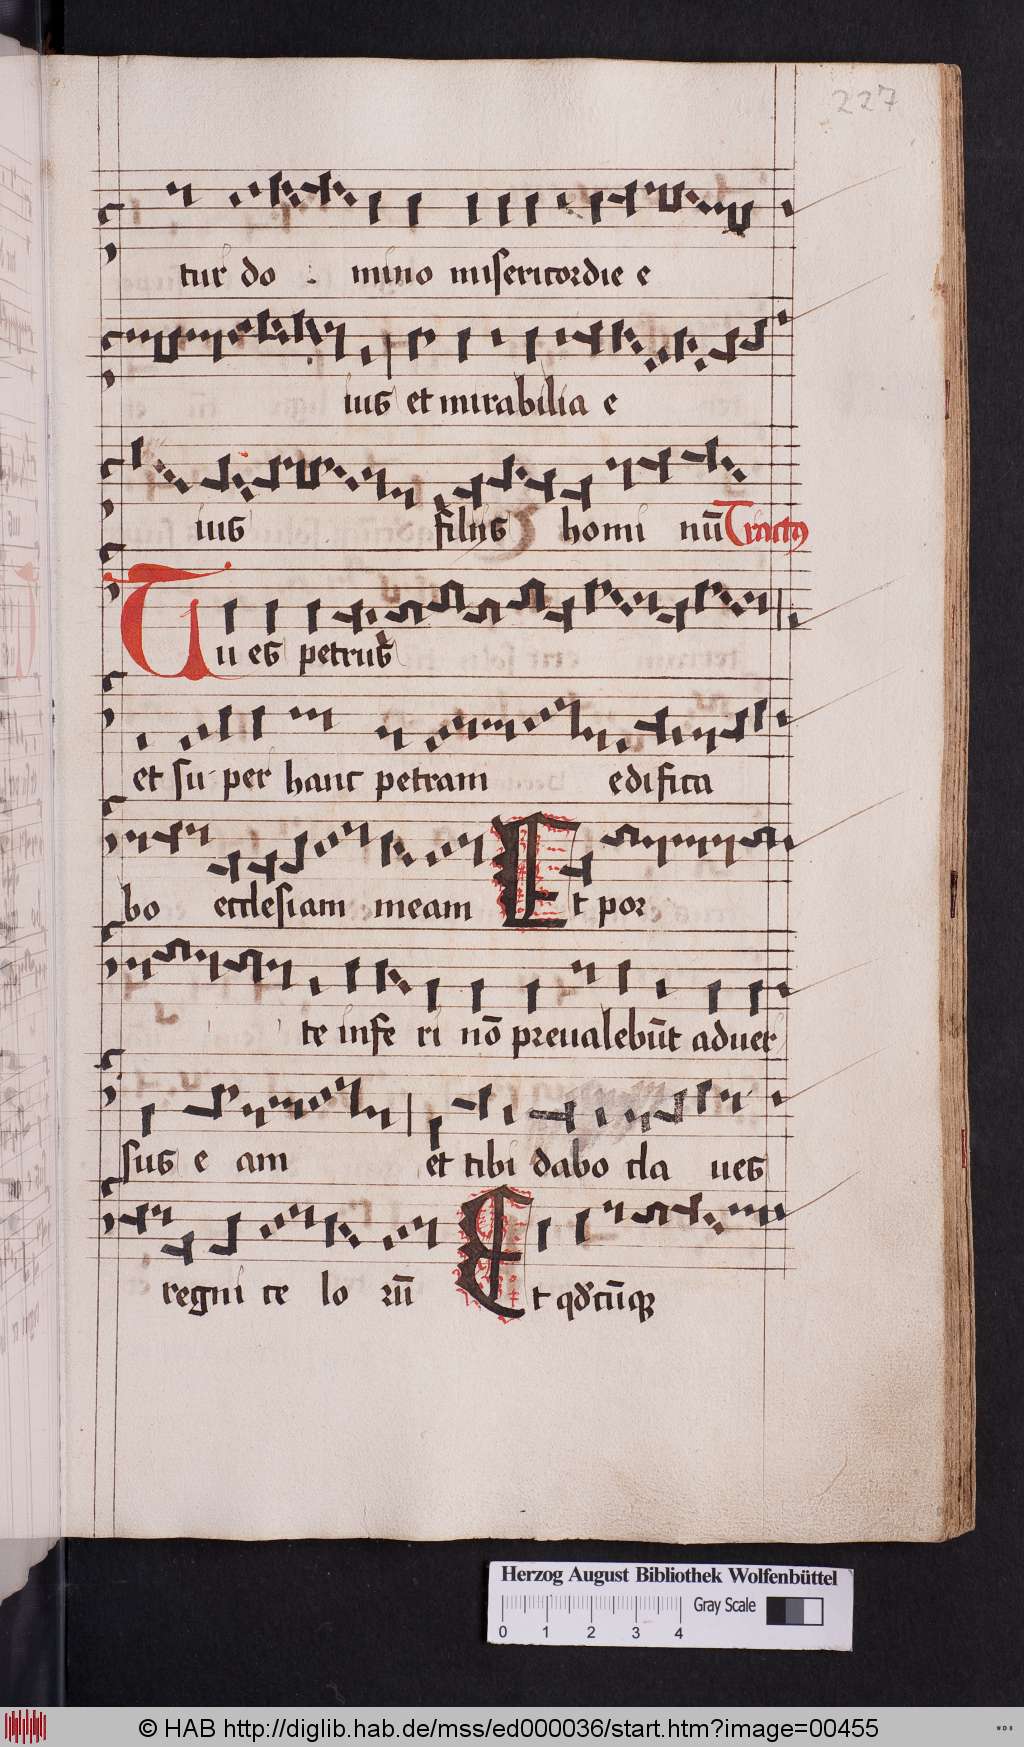 227
tur do mino misericordie e
ius et mirabilia e
ius filijs homi nū Tractꝰ
Tu es petrus
et su per hanc petram edifica
bo ecclesiam meam Et por
te infe ri nō preualebūt aduer
sus e am et tibi dabo cla ues
regni ce lo rū Et qd̛cūqꝫ
Herzog August Bibliothek Wolfenbüttel
Gray Scale
0 1 2 3 4
© HAB http://diglib.hab.de/mss/ed000036/start.htm?image=00455